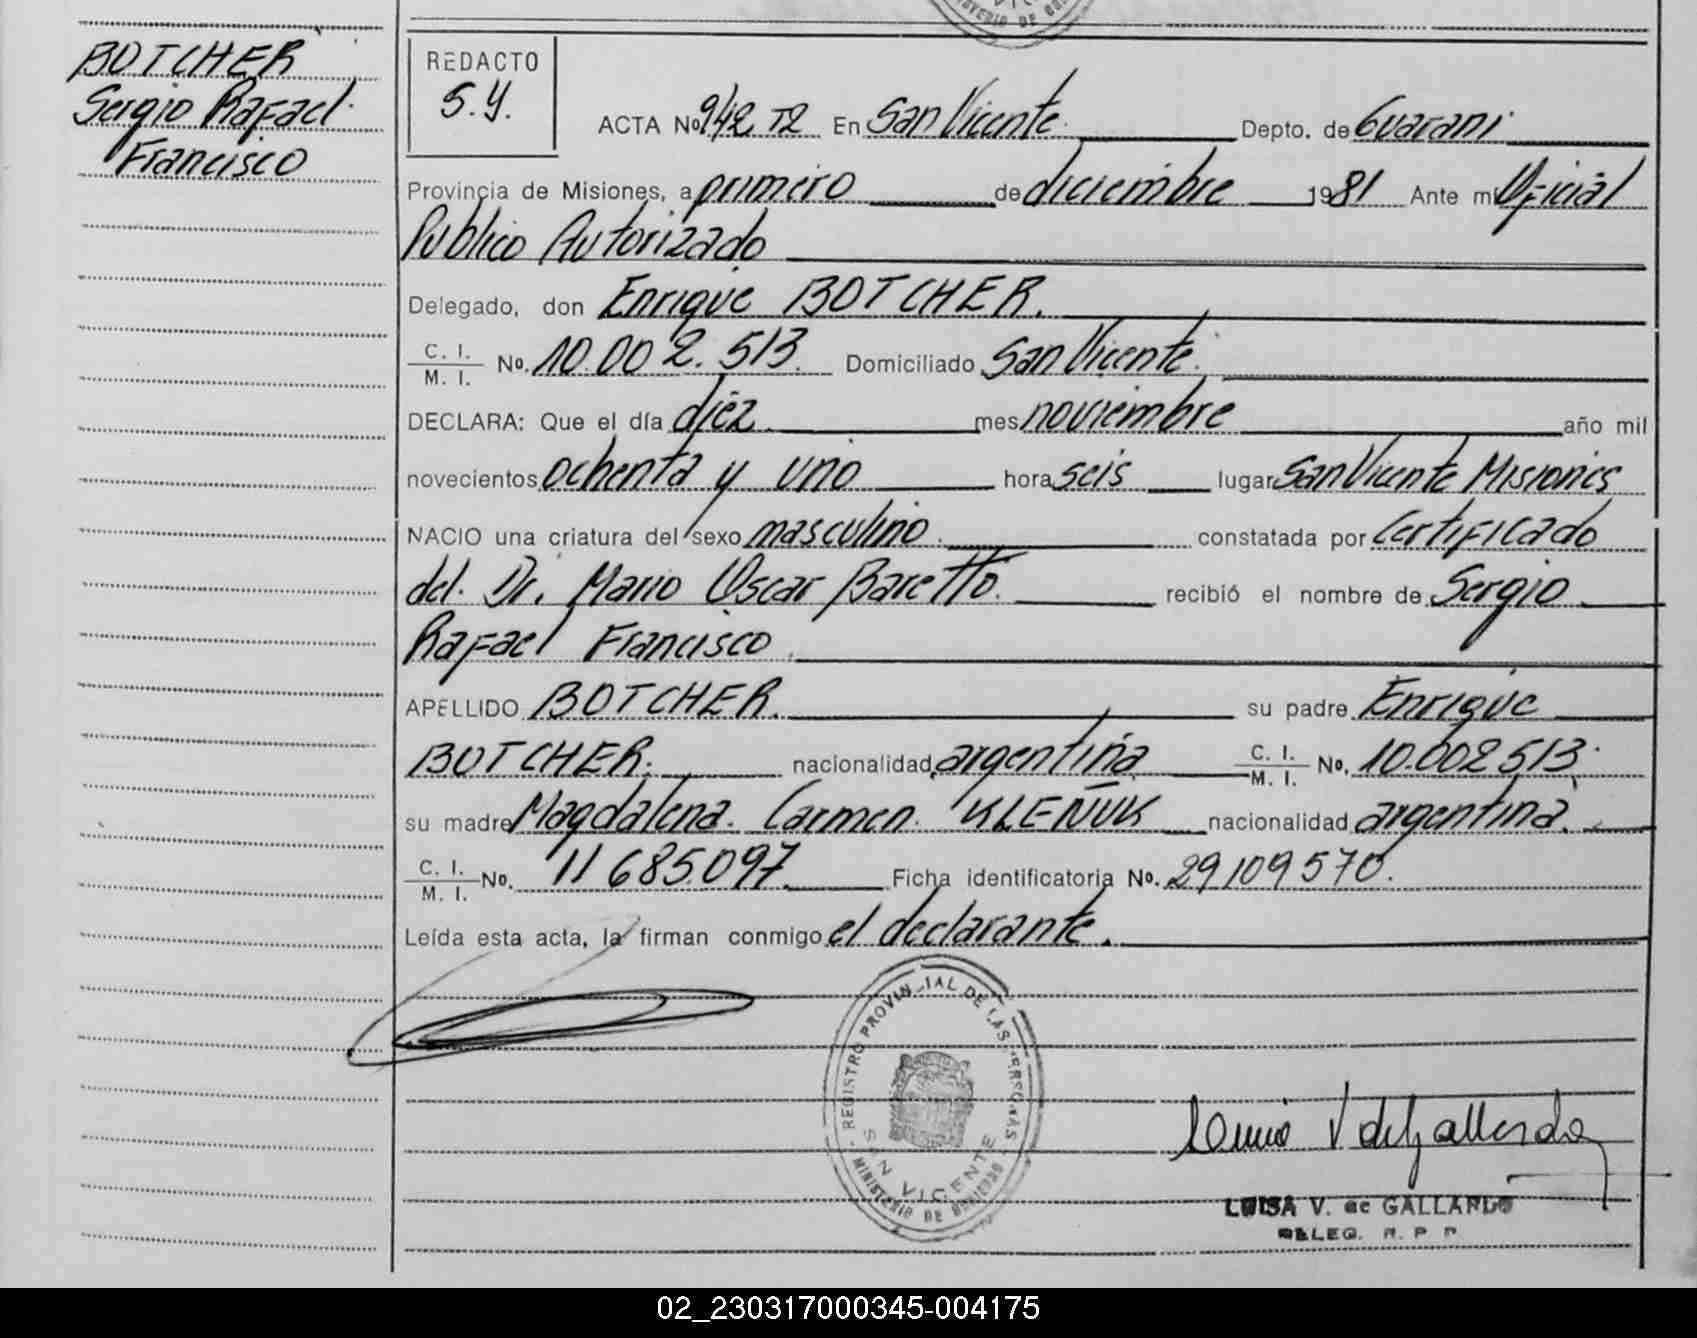 BOTCHER
Sergio Rafael
Francisco
REDACTO
S.Y.
ACTA Nº 942 T2 En San Vicente Depto. de Guarani
Provincia de Misiones, a primero de diciembre 1981 Ante mí Oficial
Publico Autorizado
Delegado, don Enrique BOTCHER.
C. I.
M. I. Nº. 10.002.513. Domiciliado San Vicente.
DECLARA: Que el día diez mes noviembre año mil
novecientos ochenta y uno hora seis lugar San Vicente Misiones
NACIO una criatura del sexo masculino. constatada por Certificado
del. Dr. Mario Oscar Baretto. recibió el nombre de Sergio
Rafael Francisco.
APELLIDO BOTCHER. su padre Enrique
BOTCHER. nacionalidad argentina C. I.
M. I. Nº. 10.002513.
su madre Magdalena. Carmen. KLEÑUK nacionalidad argentina.
C. I.
M. I. Nº. 11685.097 Ficha identificatoria Nº. 29109570.
Leída esta acta, la firman conmigo el declarante.
REGISTRO PROVINCIAL DE LAS PERSONAS
SAN VICENTE
MINISTERIO DE GOBIERNO
V de Gallardo
LUISA V. de GALLARDO
DELEG. R. P. P.
02_230317000345-004175